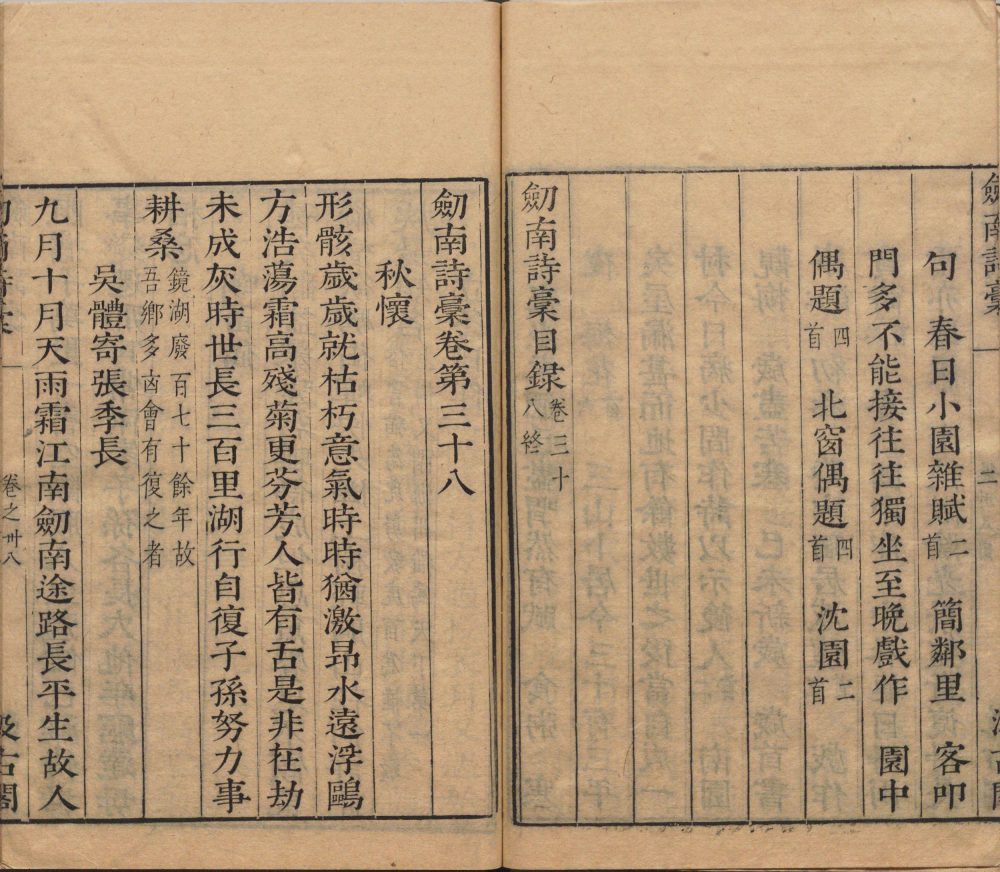 劒南詩稾
二
句 春日小園雜賦二首 簡鄰里 客叩
門多不能接往往獨坐至晚戲作 園中
偶題四首 北窗偶題四首 沈園二首
劒南詩稾目錄卷三十八終
劒南詩稾卷第三十八
秋懷
形骸歲歲就枯朽意氣時時猶激昂水遠浮鷗
方浩蕩霜高殘菊更芬芳人皆有舌是非在劫
未成灰時世長三百里湖行自復子孫努力事
耕桑鏡湖廢百七十餘年故吾鄉多㐫會有復之者
吳體寄張季長
九月十月天雨霜江南劒南途路長平生故人
卷之卅八
汲古閣